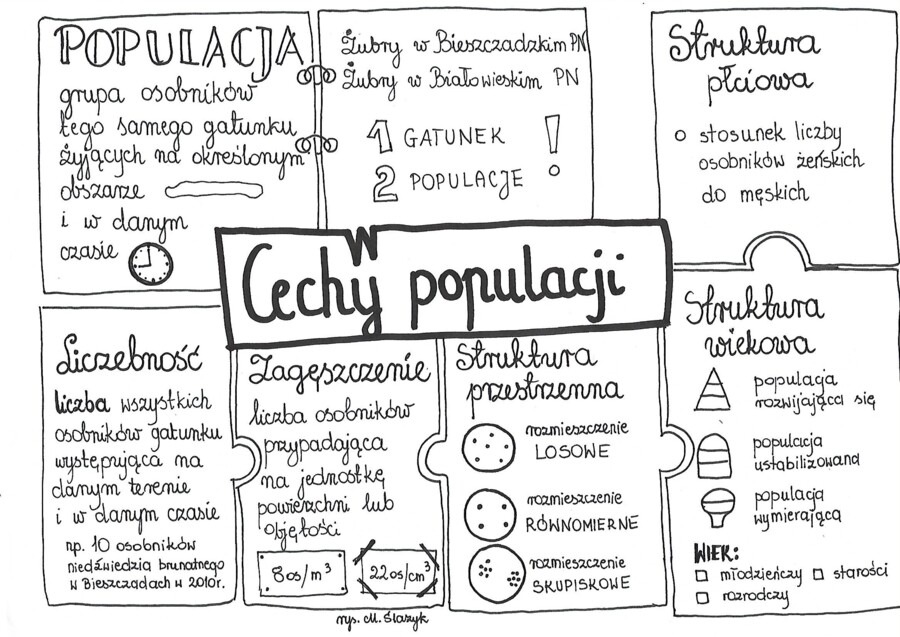 POPULACJA
grupa osobników
tego samego gatunku
żyjących na określonym
obszarze
i w danym
czasie
Żubry w Bieszczadzkim PN
Żubry w Białowieskim PN
1 GATUNEK
2 POPULACJE
!
Struktura
płciowa
stosunek liczby
osobników żeńskich
do męskich
W
Cechy populacji
Liczebność
liczba wszystkich
osobników gatunku
występująca na
danym terenie
i w danym czasie
np. 10 osobników
niedźwiedzia brunatnego
w Bieszczadach w 2010r.
Zagęszczenie
liczba osobników
przypadająca
na jednostkę
powierzchni lub
objętości
8os/m³
22os/cm³
Struktura
przestrzenna
rozmieszczenie
LOSOWE
rozmieszczenie
RÓWNOMIERNE
rozmieszczenie
SKUPISKOWE
Struktura
wiekowa
populacja
rozwijająca się
populacja
ustabilizowana
populacja
wymierająca
WIEK:
młodzieńczy starości
rozrodczy
rys. M. Ślazyk